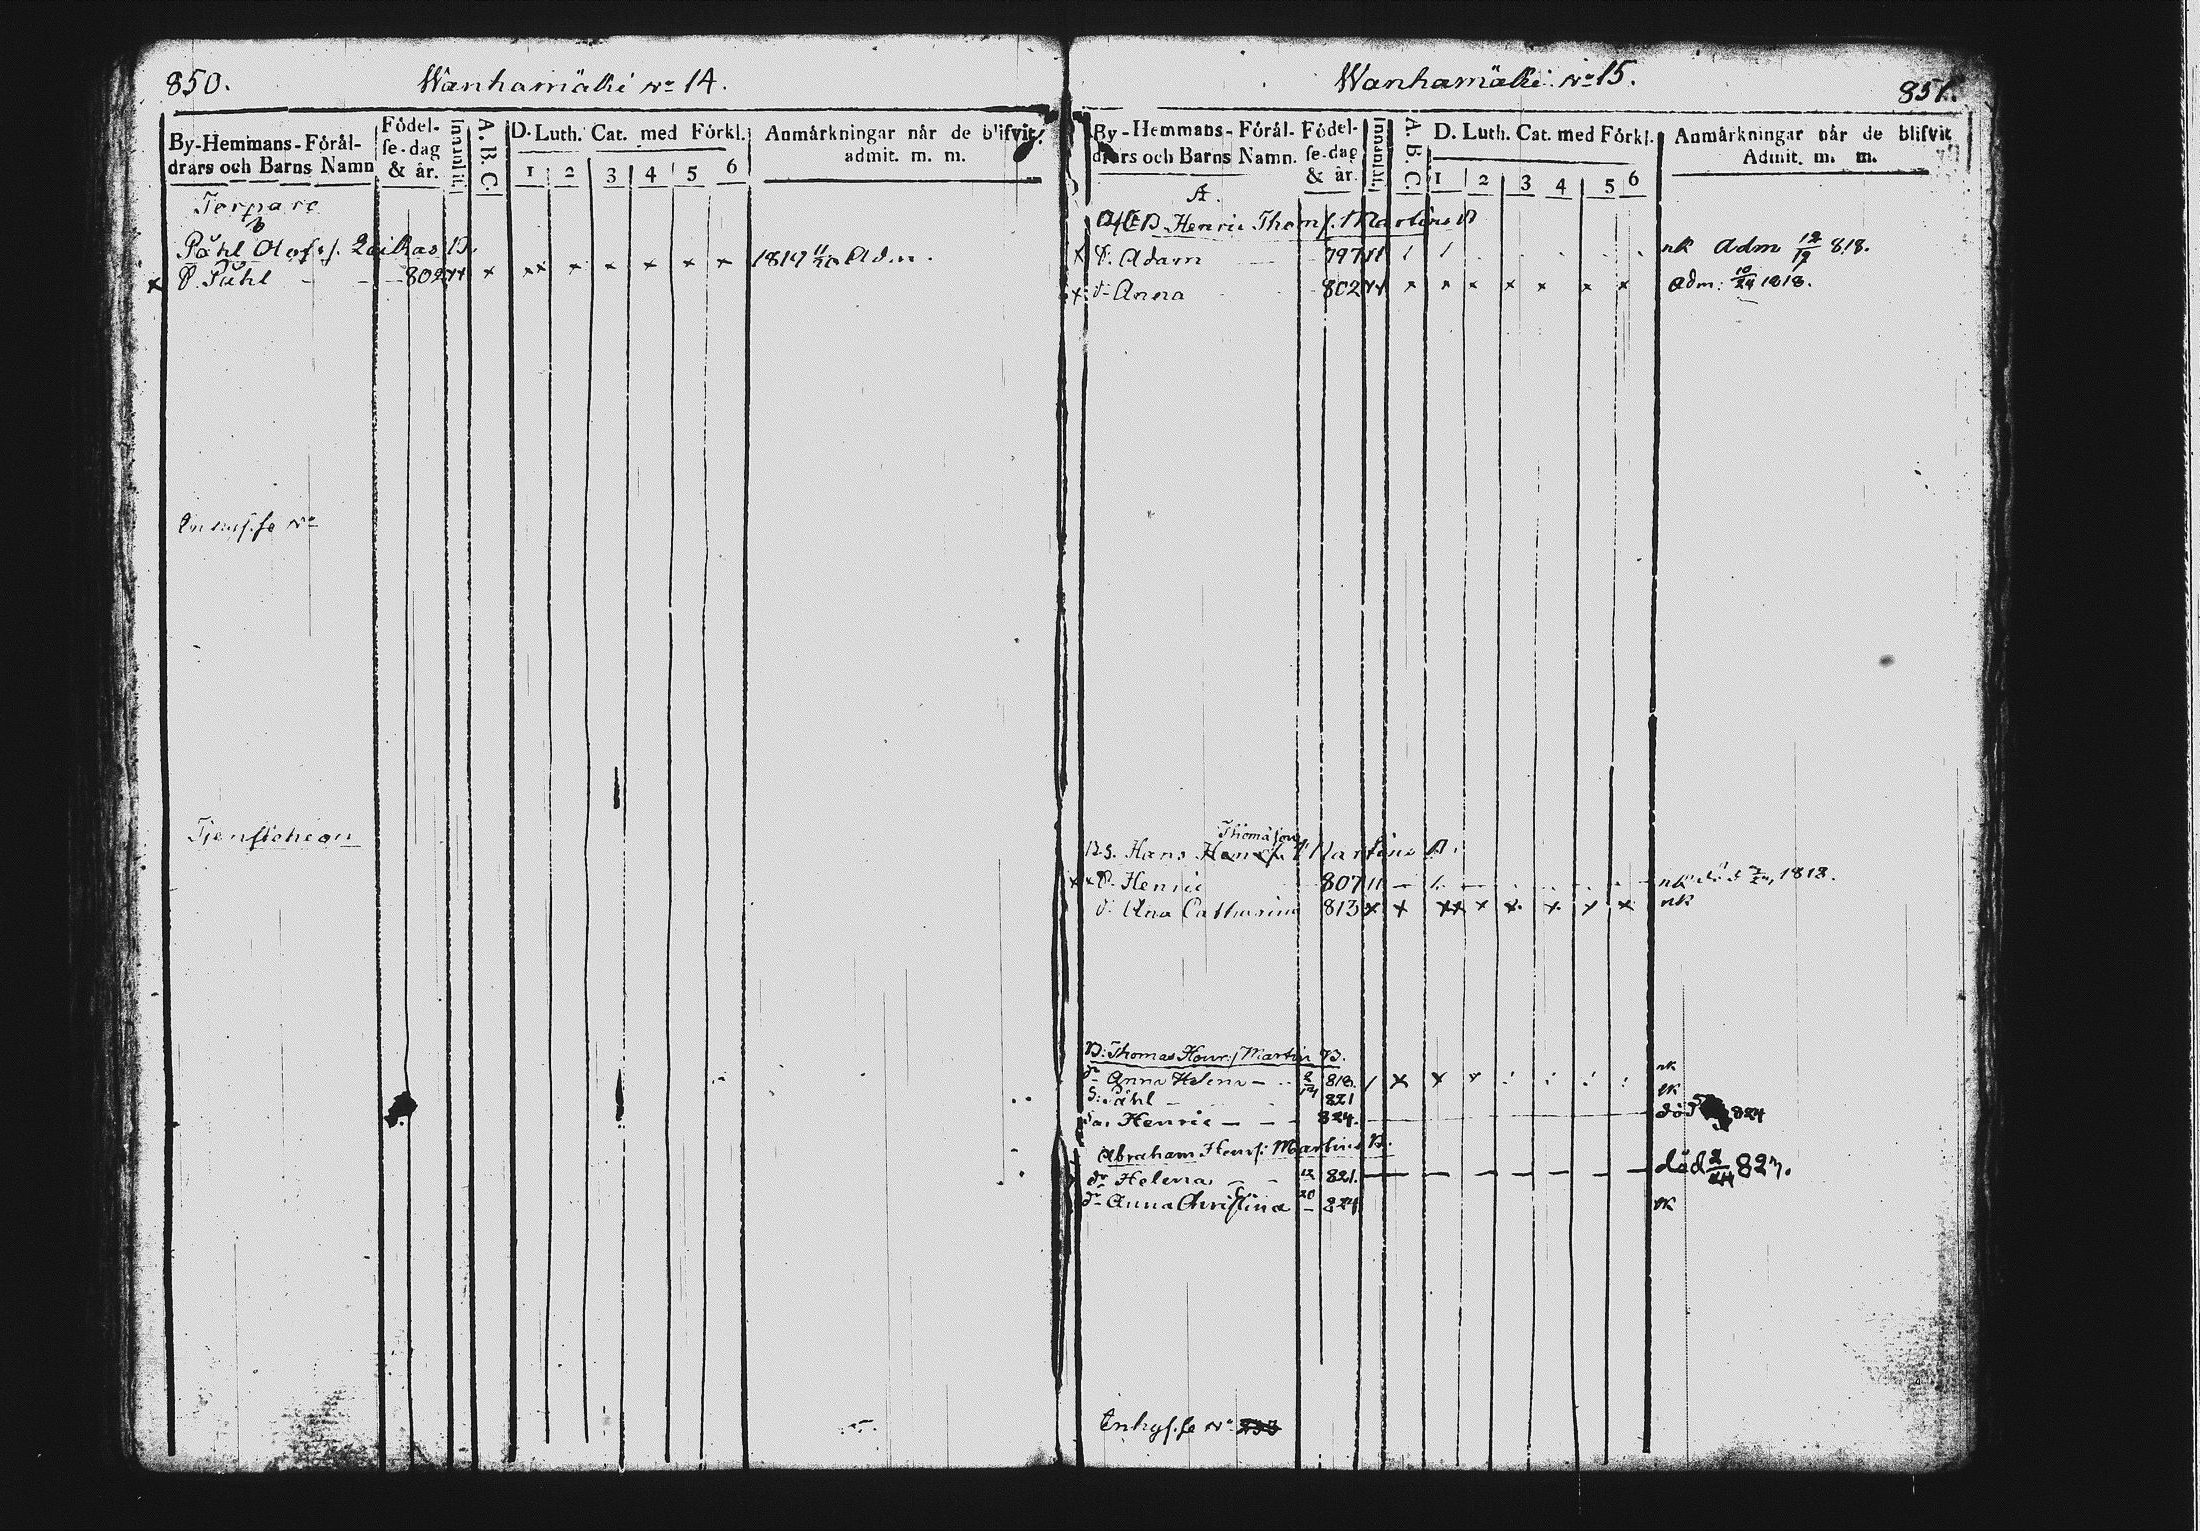 850.
Wanhamäki No 14.
By-Hemmans-Föräl-
drars och Barns Namn
Födel-
se-dag
& år.
Innanlit.
A. B. C.
D. Luth. Cat. med Förkl.
1 2 3 4 5 6
Anmärkningar når de blifvit
admit. m. m.
Torpare
Påhl Olofss. Laikas B.
x S. Påhl - - 802 x x x x x x x Adm.
Inhysse No
Tjenstehion
Wanhamäki No 15.
851.
By-Hemmans-Föräl-
drars och Barns Namn.
Födel-
se-dag
& år.
Innanlit.
A. B. C.
D. Luth. Cat. med Förkl.
1 2 3 4 5 6
Anmärkningar når de blifvit
Admit. m. m.
A.
Henric Thomss. Martins B
x S. Adam 797 nk Adm 12/19 818.
x d. Anna 802 x x x x x x x Adm: 10/24 1818.
Thomasson
Bs. Hans Martins B.
S. Henric 807 nk död 1818.
d: Ana Catharina 813 x x xx x x x x x nk
B: Thomas Henrs. Martin B.
dr Anna Helena - 2/14 818. / x x x nk
S: Påhl - 821
Henric - - - 824. död 824
Abraham Henrs: Martins B.
dr Helena - - 12 821. - - - - - - död 2/24 827.
dr Anna Christina 20 - 824
Inhysse No